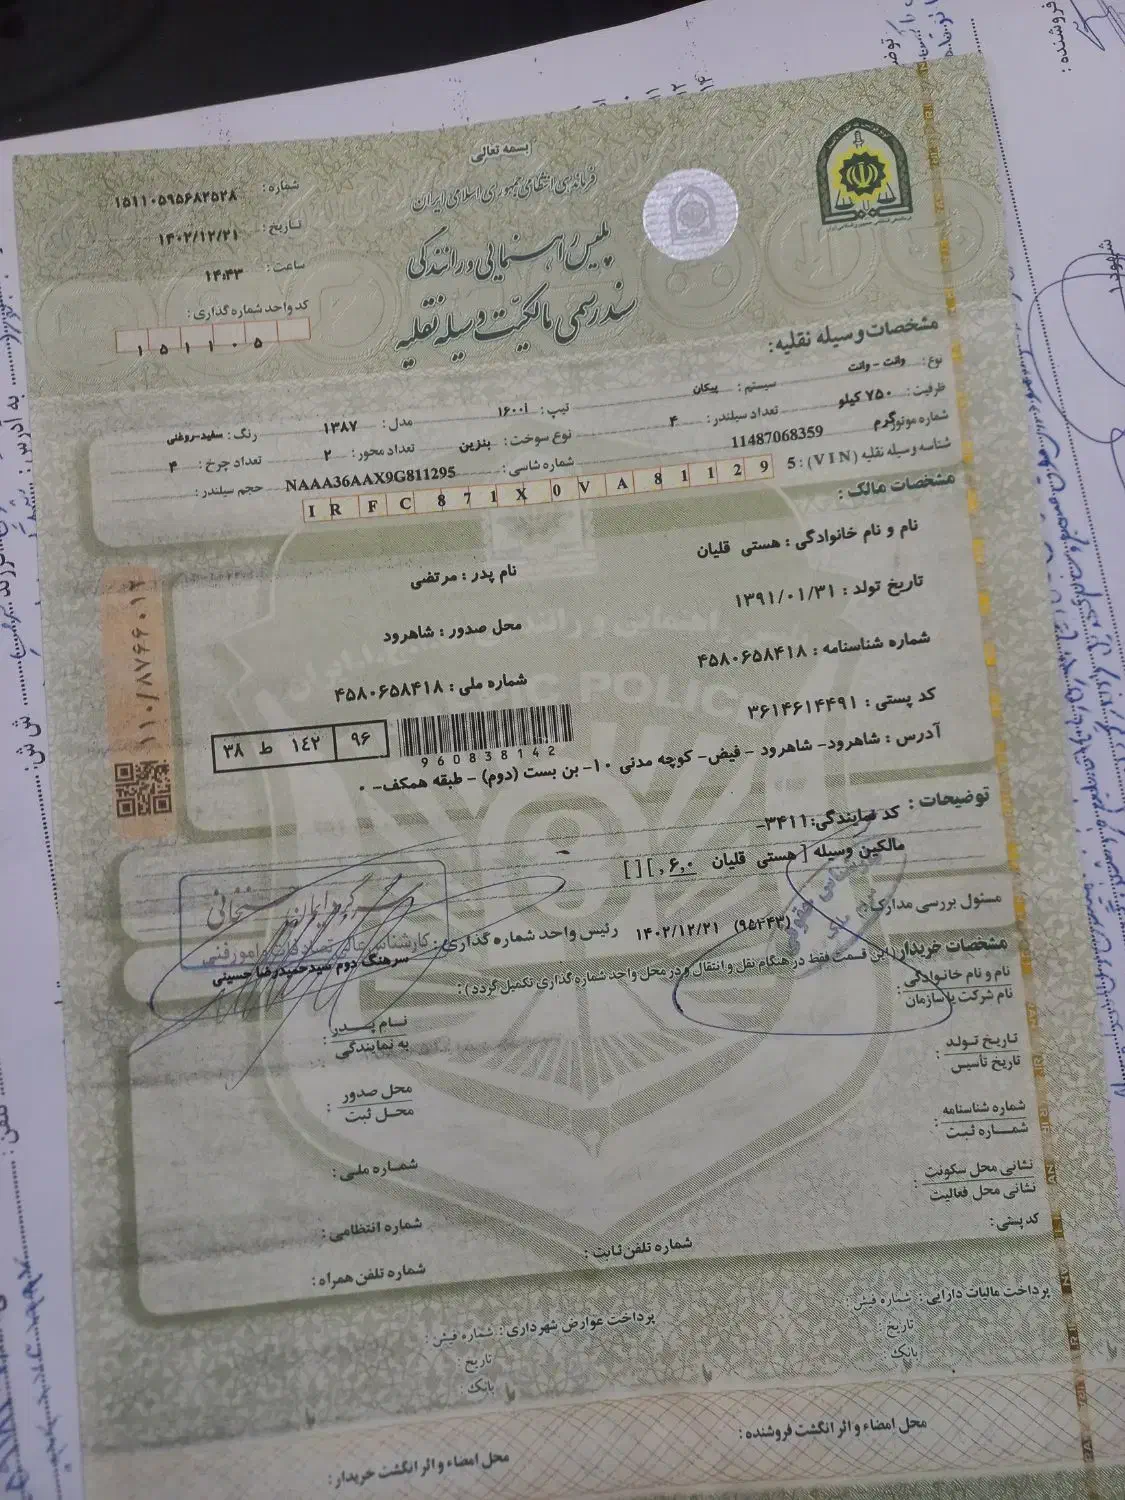 بسمه تعالی
فرماندهی انتظامی جمهوری اسلامی ایران
پلیس راهنمایی و رانندگی
سند رسمی مالکیت وسیله نقلیه
شماره: ۱۵۱۱۰۵۹۵۶۸۲۵۲۸
تاریخ: ۱۴۰۲/۱۲/۲۱
ساعت: ۱۴:۴۳
کد واحد شماره گذاری:
۱۵۱۱۰۵
مشخصات وسیله نقلیه:
نوع: وانت - وانت سیستم: پیکان تیپ: ۱۶۰۰i مدل: ۱۳۸۷ رنگ: سفید-روغنی
ظرفیت: ۷۵۰ کیلو گرم تعداد سیلندر: ۴ نوع سوخت: بنزین تعداد محور: ۲ تعداد چرخ: ۴
شماره موتور: 11487068359 شماره شاسی: NAAA36AAX9G811295 حجم سیلندر:
شناسه وسیله نقلیه (VIN): IRFC871X0VA811295
مشخصات مالک:
نام و نام خانوادگی: هستی قلیان نام پدر: مرتضی
تاریخ تولد: ۱۳۹۱/۰۱/۳۱ محل صدور: شاهرود
شماره شناسنامه: ۴۵۸۰۶۵۸۴۱۸ شماره ملی: ۴۵۸۰۶۵۸۴۱۸
کد پستی: ۳۶۱۴۶۱۴۴۹۱
۳۸ ط ۱٤۲ ۹۶
960838142
آدرس: شاهرود- شاهرود - فیض- کوچه مدنی ۱۰- بن بست (دوم) - طبقه همکف- ۰
۱۱۰/۸۷۶۶۰۱۲
توضیحات: کد نمایندگی:۳۴۱۱-
مالکین وسیله [ هستی قلیان ۶,۰ , ] [ ]
مسئول بررسی مدارک: (۹۵۴۴۳) ۱۴۰۲/۱۲/۲۱ رئیس واحد شماره گذاری:
سرهنگ دوم سیدحمیدرضا حسینی
کارشناس عالی تصادفات و امور فنی
مشخصات خریدار (این قسمت فقط در هنگام نقل و انتقال و در محل واحد شماره گذاری تکمیل گردد):
نام و نام خانوادگی
نام شرکت یا سازمان:
نام پدر
به نمایندگی:
تاریخ تولد
تاریخ تأسیس:
محل صدور
محل ثبت:
شماره شناسنامه
شماره ثبت:
شماره ملی:
نشانی محل سکونت
نشانی محل فعالیت:
شماره انتظامی:
کدپستی:
شماره تلفن ثابت:
شماره تلفن همراه:
پرداخت مالیات دارایی: شماره فیش:
تاریخ:
بانک:
پرداخت عوارض شهرداری: شماره فیش:
تاریخ:
بانک:
محل امضاء و اثر انگشت فروشنده:
محل امضاء و اثر انگشت خریدار:
فروشنده:
شهود ۱
به آدرس:
ش ش:
تلفن: